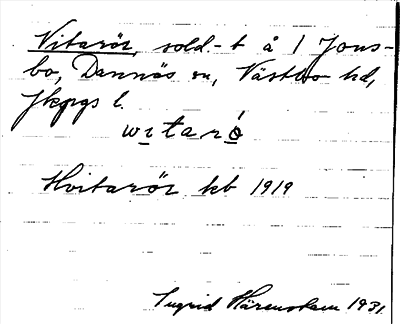 Vitarör, sold.-t å 1 Jons-
bo, Dannäs sn, Västbo hd,
Jkpgs l.
witarö
Hvitarör kb 1919
Ingrid Härenstam 1931